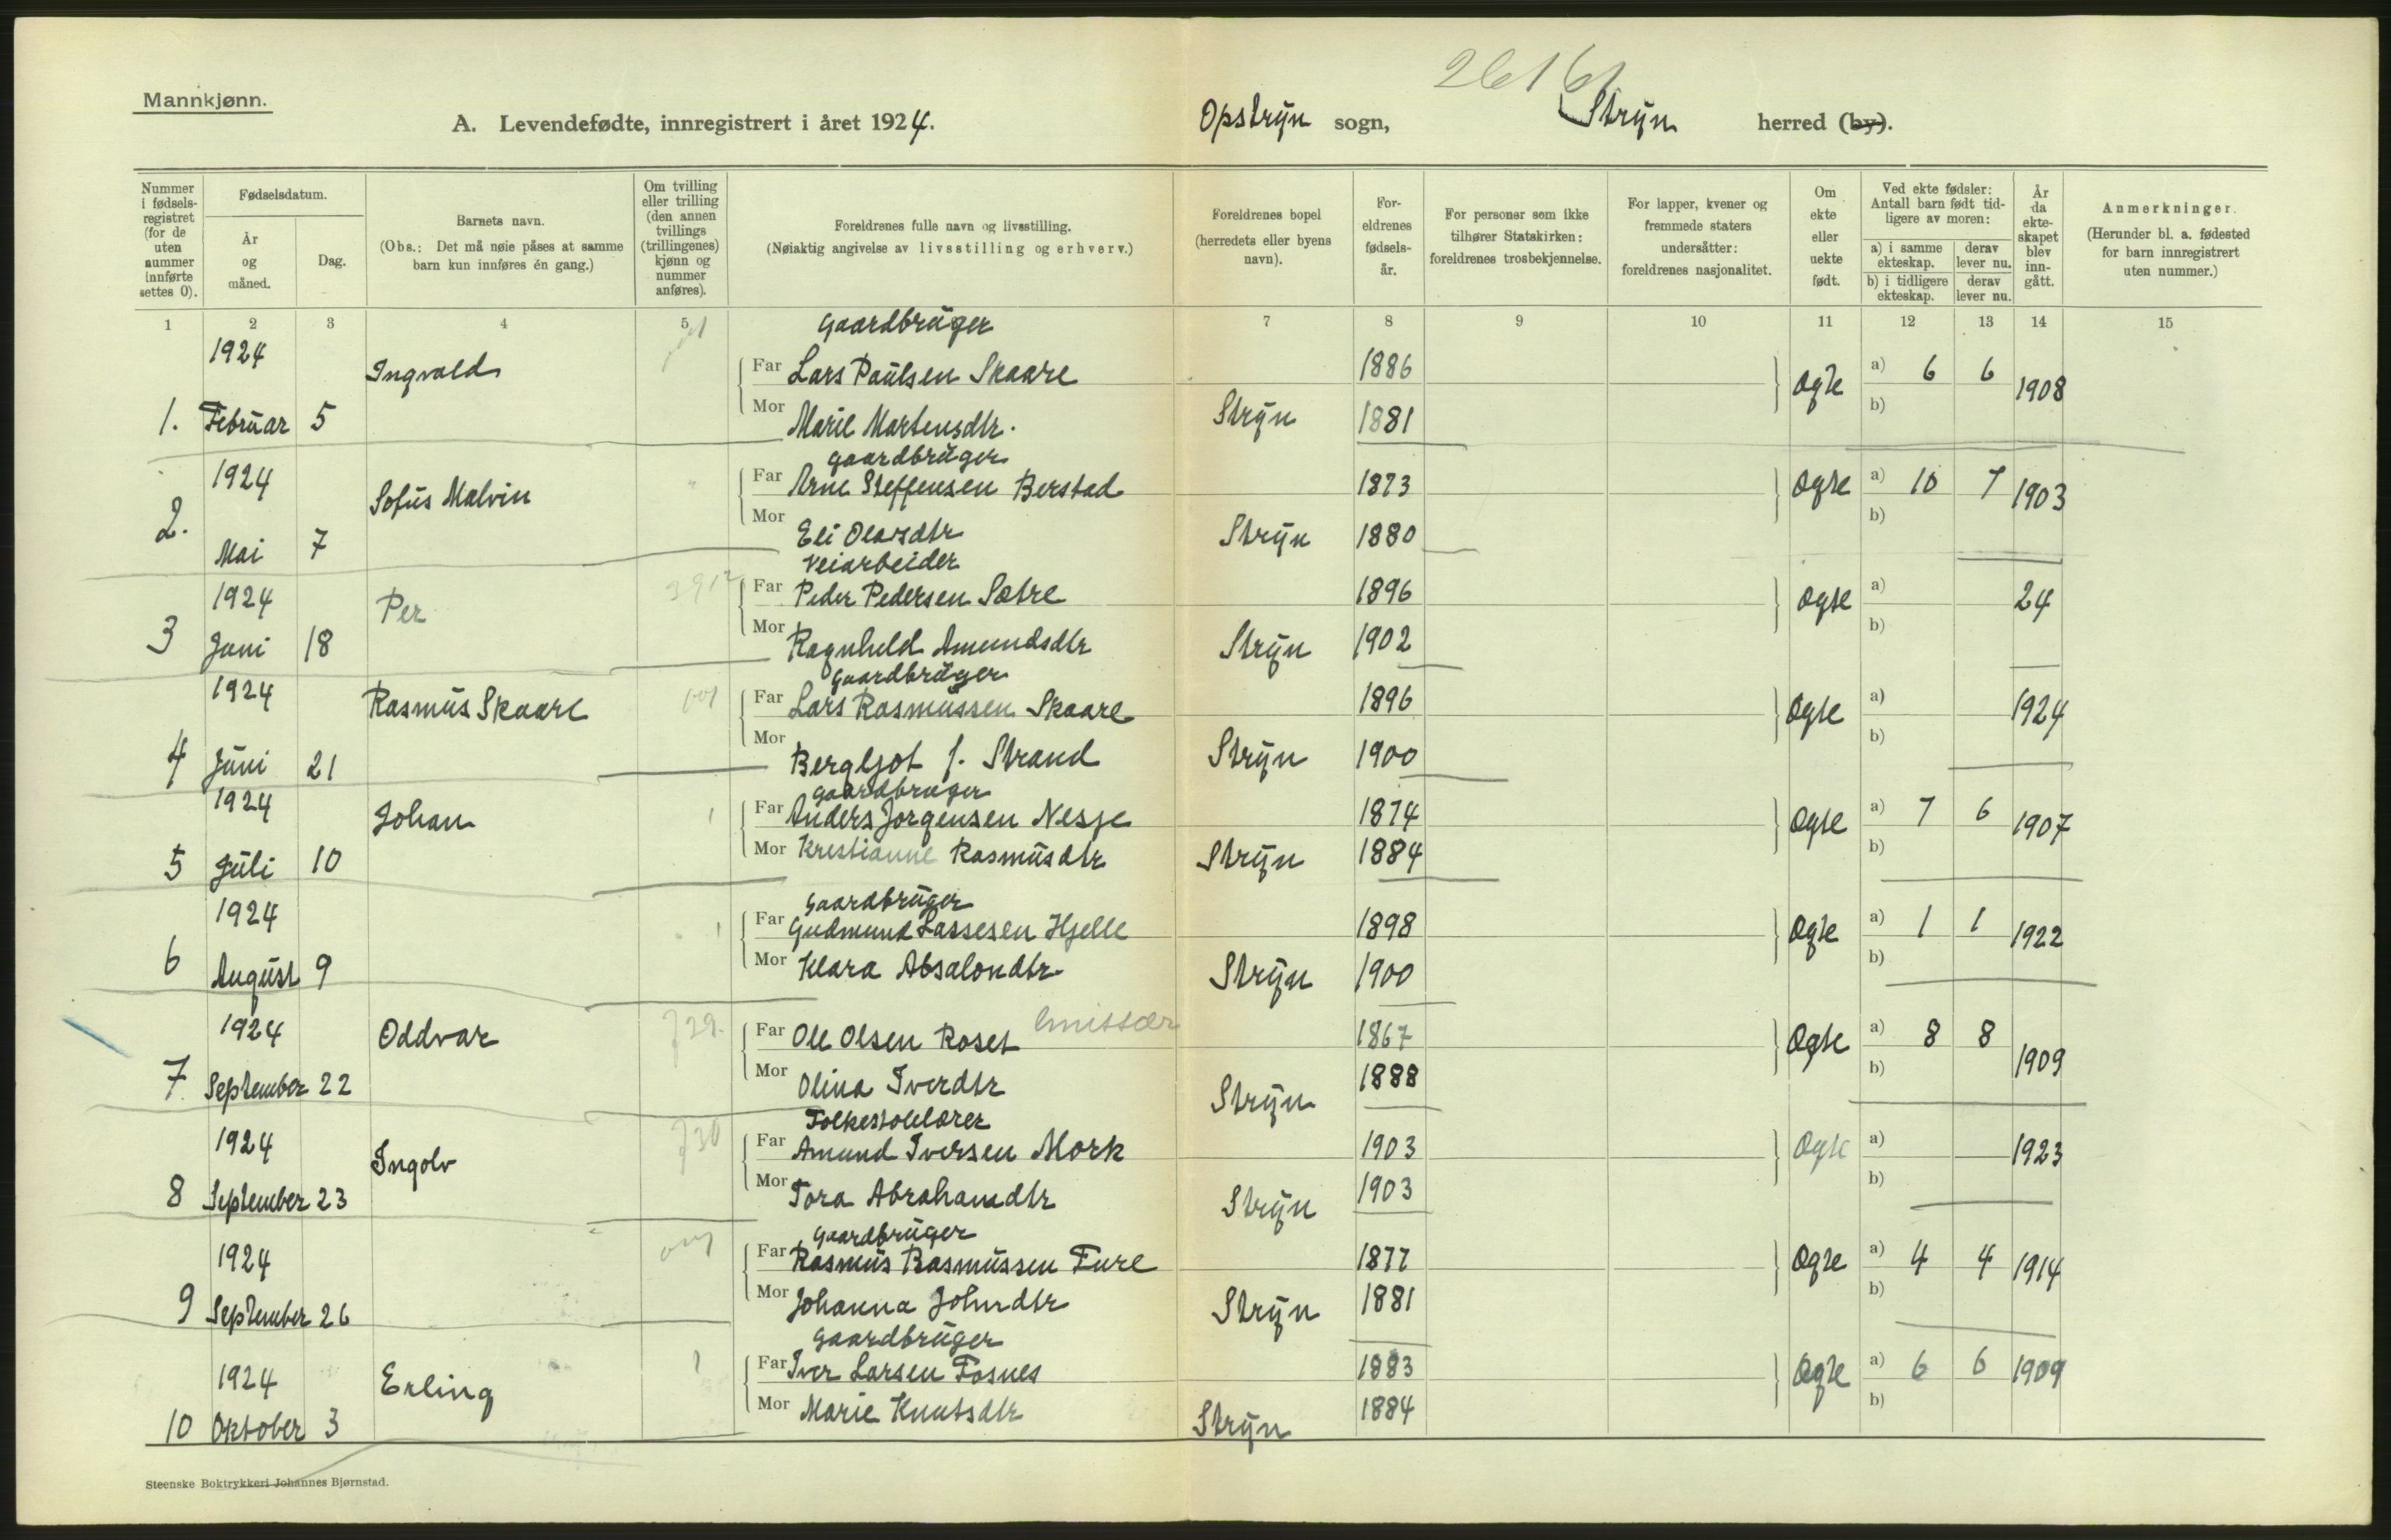 2616
Mannkjønn.
A. Levendefødte, innregistrert i året 1924.
Opstryn sogn, Stryn herred (by).
Nummer i fødsels-registret (for de uten nummer innførte settes 0).
Fødselsdatum.
År og måned.
Dag.
Barnets navn.
(Obs.: Det må nøie påses at samme barn kun innføres én gang.)
Om tvilling eller trilling (den annen tvillings (trillingenes) kjønn og nummer anføres).
Foreldrenes fulle navn og livsstilling.
(Nøiaktig angivelse av livsstilling og erhverv.)
Foreldrenes bopel (herredets eller byens navn).
For-eldrenes fødsels-år.
For personer som ikke tilhører Statskirken: foreldrenes trosbekjennelse.
For lapper, kvener og fremmede staters undersåtter: foreldrenes nasjonalitet.
Om ekte eller uekte født.
Ved ekte fødsler: Antall barn født tid-ligere av moren:
a) i samme ekteskap. derav lever nu.
b) i tidligere ekteskap. derav lever nu.
År da ekte-skapet blev inn-gått.
Anmerkninger.
(Herunder bl. a. fødested for barn innregistrert uten nummer.)
1 2 3 4 5 7 8 9 10 11 12 13 14 15
Gaardbruger
1924 Ingvald Far Lars Paulsen Skaare 1886 Ogte a) 6 6 1908
1. Februar 5 Mor Marie Martensdtr. Stryn 1881 b)
gaardbruger
1924 Sofus Malvin Far Arne Steffensen Berstad 1873 Ogte a) 10 7 1903
2. Mai 7 Mor Eli Olavsdtr Stryn 1880 b)
Veiarbeider
1924 Per 3912 Far Peder Pedersen Sætre 1896 Ogte a) 24
3 Juni 18 Mor Ragnheld Amundsdtr Stryn 1902 b)
Gaardbruger
1924 Rasmus Skaare Far Lars Rasmussen Skaare 1896 Ogte a) 1924
4 Juni 21 Mor Bergljot f. Strand Stryn 1900 b)
gaardbruger
1924 Johan 1 Far Anders Jorgensen Nesje 1874 Ogte a) 7 6 1907
5 Juli 10 Mor Kristianne Rasmusdtr Stryn 1884 b)
Gaardbruger
1924 1 Far Gudmund Lassesen Hjelle 1898 Ogte a) 1 1 1922
6 August 9 Mor Klara Absalondtr. Stryn 1900 b)
1924 Oddvar 29. Far Ole Olsen Roset Emissær 1867 Ogte a) 8 8 1909
7. September 22 Mor Olina Iverdtr Stryn 1888 b)
Folkeskolelærer
1924 Ingolv 30 Far Amund Iversen Mork 1903 Ogte a) 1923
8 September 23 Mor Tora Abrahamdtr Stryn 1903 b)
Gaardbruger
1924 Far Rasmus Rasmussen Fure 1877 Ogte a) 4 4 1914
9 September 26 Mor Johanna Johndtr Stryn 1881 b)
Gaardbruger
1924 Erling 1 Far Iver Larsen Fosnes 1883 Ogte a) 6 6 1909
10 Oktober 3 Mor Marie Knutsdtr Stryn 1884 b)
Steenske Boktrykkeri Johannes Bjørnstad.